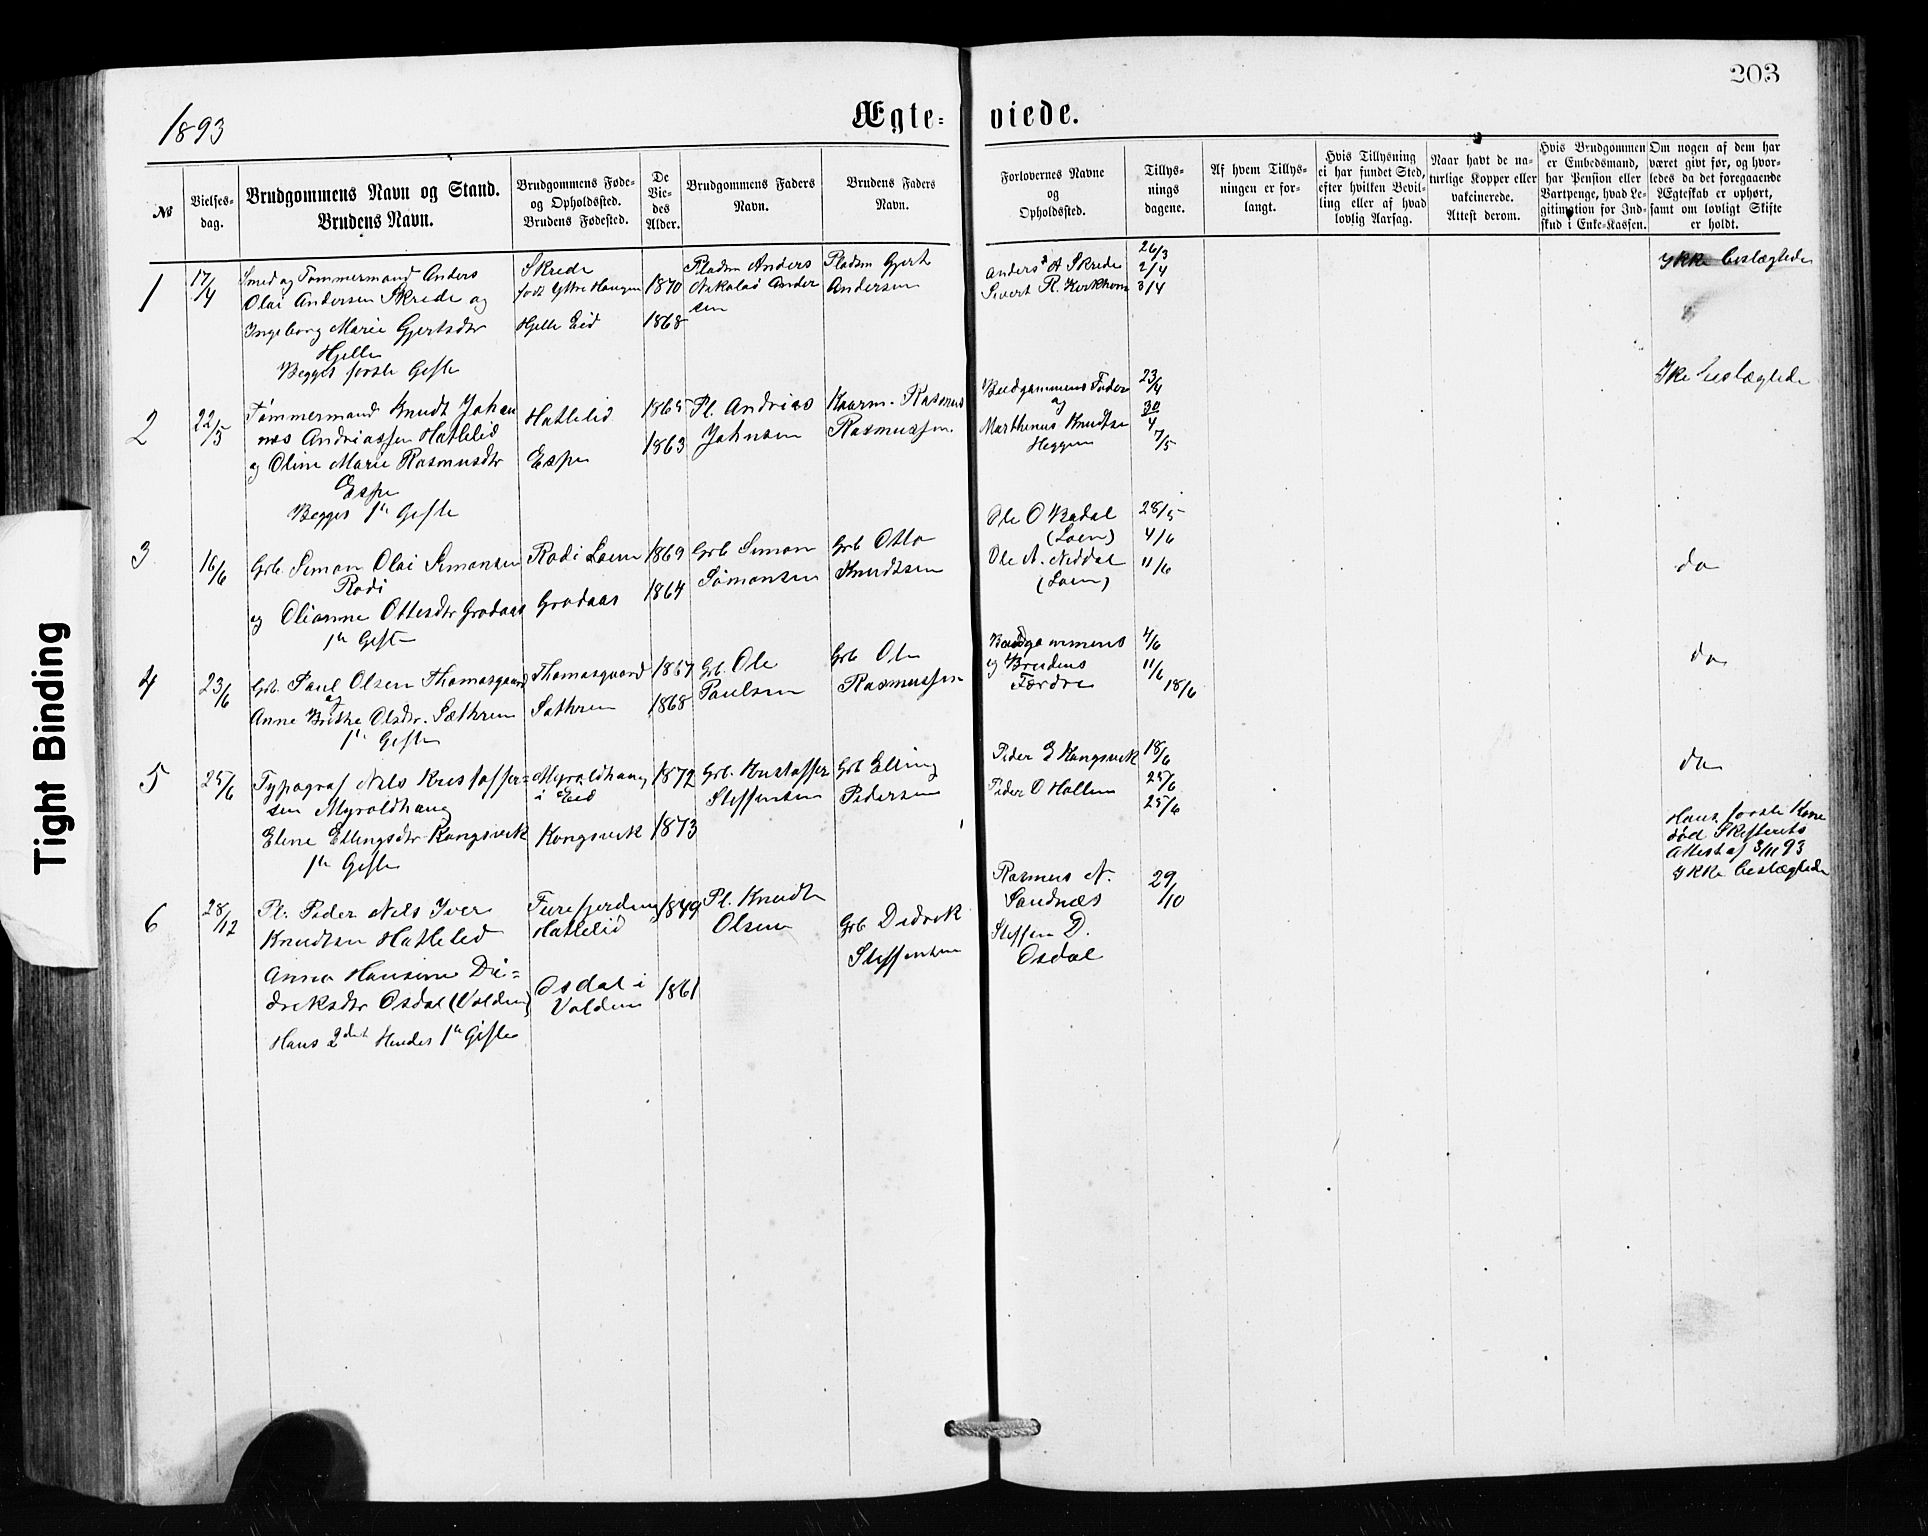 203
1893
Ægte= viede.
No
Vielses-
dag.
Brudgommens Navn og Stand.
Brudens Navn.
Brudgommens Føde-
og Opholdssted.
Brudens Fødested.
De
Vie-
des
Alder.
Brudgommens Faders
Navn.
Brudens Faders
Navn.
Forlovernes Navne
og
Opholdssted.
Tillys-
nings
dagene.
Af hvem Tillys-
ningen er for-
langt.
Hvis Tillysning
ei har fundet Sted,
efter hvilken Bevil-
ling eller af hvad
lovlig Aarsag.
Naar havt de na-
turlige Kopper eller
vakcinerede.
Attest derom.
Hvis Brudgommen
er Embedsmand,
har Pension eller
Vartpenge, hvad Le-
gitimation for Ind-
skud i Enke-Kassen.
Om nogen af dem har
været givt før, og hvor-
ledes da det foregaaende
Ægteskab er ophørt,
samt om lovligt Skifte
er holdt.
1
17/4
Smed og Tømmermand Anders
Olai Andersen Skrede og
Ingeborg Marie Gjertsdtr
Hjelle
Begges første Gifte
Skrede
født Ytre Haugen
Hjelle Eid
1870
1868
Pladsm Anders
Nikolai Ander
sen
Pladsm Gjert
Andersen
Anders A Skrede
Sivert R. Kirkhorn
26/3
2/4
3/4
Ikke beslægtede
2
22/5
Tømmermand Knudt Johan
nes Andriassen Hatlelid
og Oline Marie Rasmusdtr
Espe
Begges 1te Gifte
Hatlelid
Espe
1865
1863
Pl. Andrias
Johnsen
Kaarm. Rasmus
Rasmussen.
Brudgommens Fader
og
Marthinus Knudtsen
Heggen
23/4
30/4
7/5
Ike beslægtede
3
16/6
Grb. Simon Olai Simonsen
Rodi
og Olianne Ottesdtr Grodaas
1te Gifte
Rodi Loen
Grodaas
1869
1864
Grb Simon
Simonsen
Grb Otto
Knudtsen
Ole O Bødal
(Loen)
Ole A. Neddal
(Loen)
28/5
4/6
11/6
do
4
23/6
Grb. Paul Olsen Thomasgaard
og
Anne Brithe Olsdtr. Sæthren
1te Gifte
Thomasgaard
Sæthren
1867
1868
Gb. Ole
Paulsen
Grb Ole
Rasmussen
Brudgommens
og Brudens
Fædre
4/6
11/6
18/6
do
5
25/6
Typograf Nils Kristoffer=
sen Myroldhaug
Eline Ellingsdtr Kongsvik
1te Gifte
Myroldhaug
i Eid
Kongsvik
1872
1873
Grb. Kristoffer
Steffensen
Grb Elling
Pedersen
Peder E Kongsvik
Peder O Hollen
18/6
25/6
25/6
do
6
28/12
Pl. Peder Nils Iver
Knudtsen Hatlelid
Anna Hansine Di=
driksdtr Osdal (Volden)
Hans 2det Hendes 1te Gifte
Furefjerding
Hatlelid
Osdal i
Volden
1849
1861
Pl. Knudt
Olsen
Grb Didrik
Steffensen
Rasmus N.
Sandnæs
Steffen D.
Osdal
29/10
Hans første Kone
død Skifterets
Attest af 3/11 93
Ikke beslægtede
Tight Binding